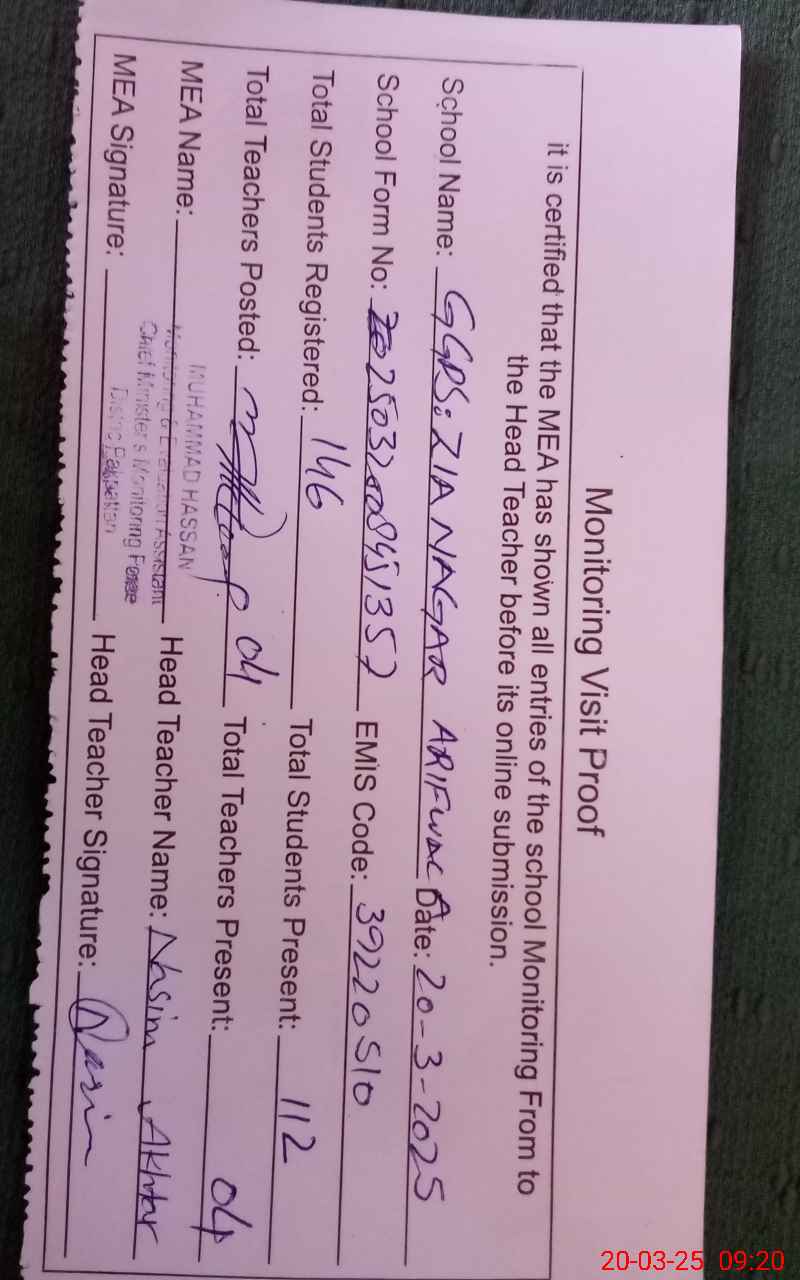 Monitoring Visit Proof
it is certified that the MEA has shown all entries of the school Monitoring From to
the Head Teacher before its online submission.
School Name: GGPS: ZIA NAGAR ARIFWALA Date: 20-3-2025
School Form No: EMIS Code: 39220510
Total Students Registered: 146 Total Students Present: 112
Total Teachers Posted: 04 Total Teachers Present: 04
MUHAMMAD HASSAN
MEA Name: Monitoring & Evaluation Assistant Head Teacher Name: Nasim Akhtar
Chief Minister's Monitoring Force
MEA Signature: District Pakpattan Head Teacher Signature: Nasim
20-03-25 09:20